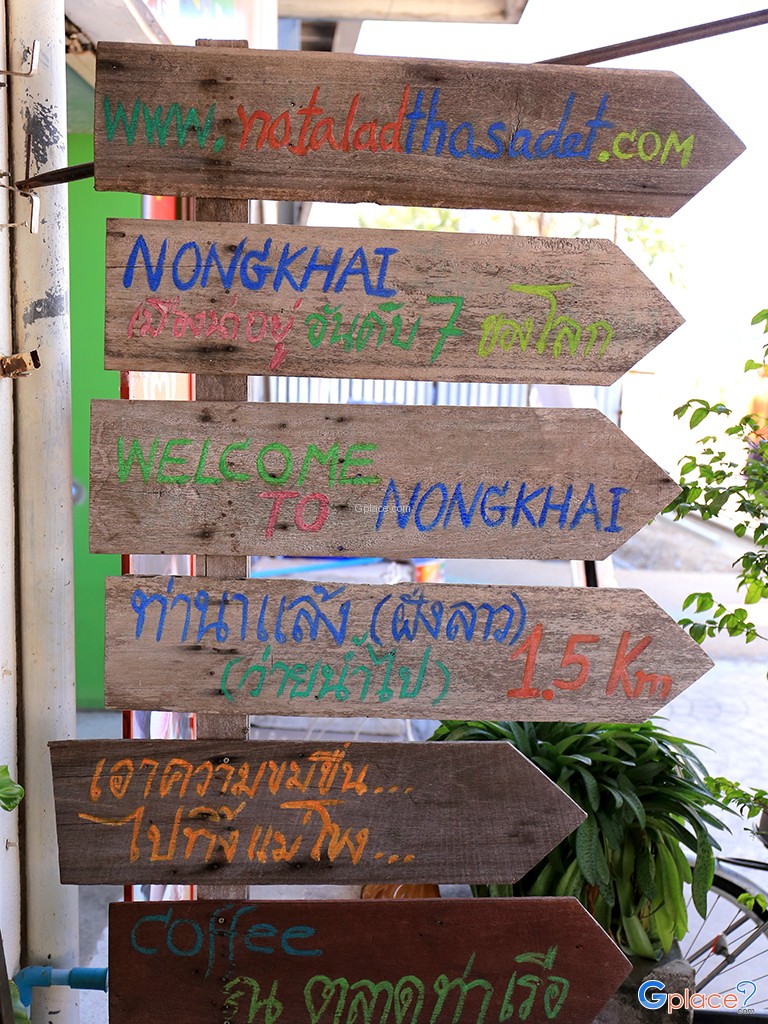 www.nataladthasadet.com
NONGKHAI
เมืองน่าอยู่ อันดับ 7 ของโลก
WELCOME
TO NONGKHAI
Gplace.com
ท่านาแล้ง (ฝั่งลาว)
(ว่ายน้ำไป) 1.5 Km
เอาความขมขื่น...
ไปทิ้งแม่โขง...
coffee
ณ ตลาดท่าเรือ
Gplace?.com